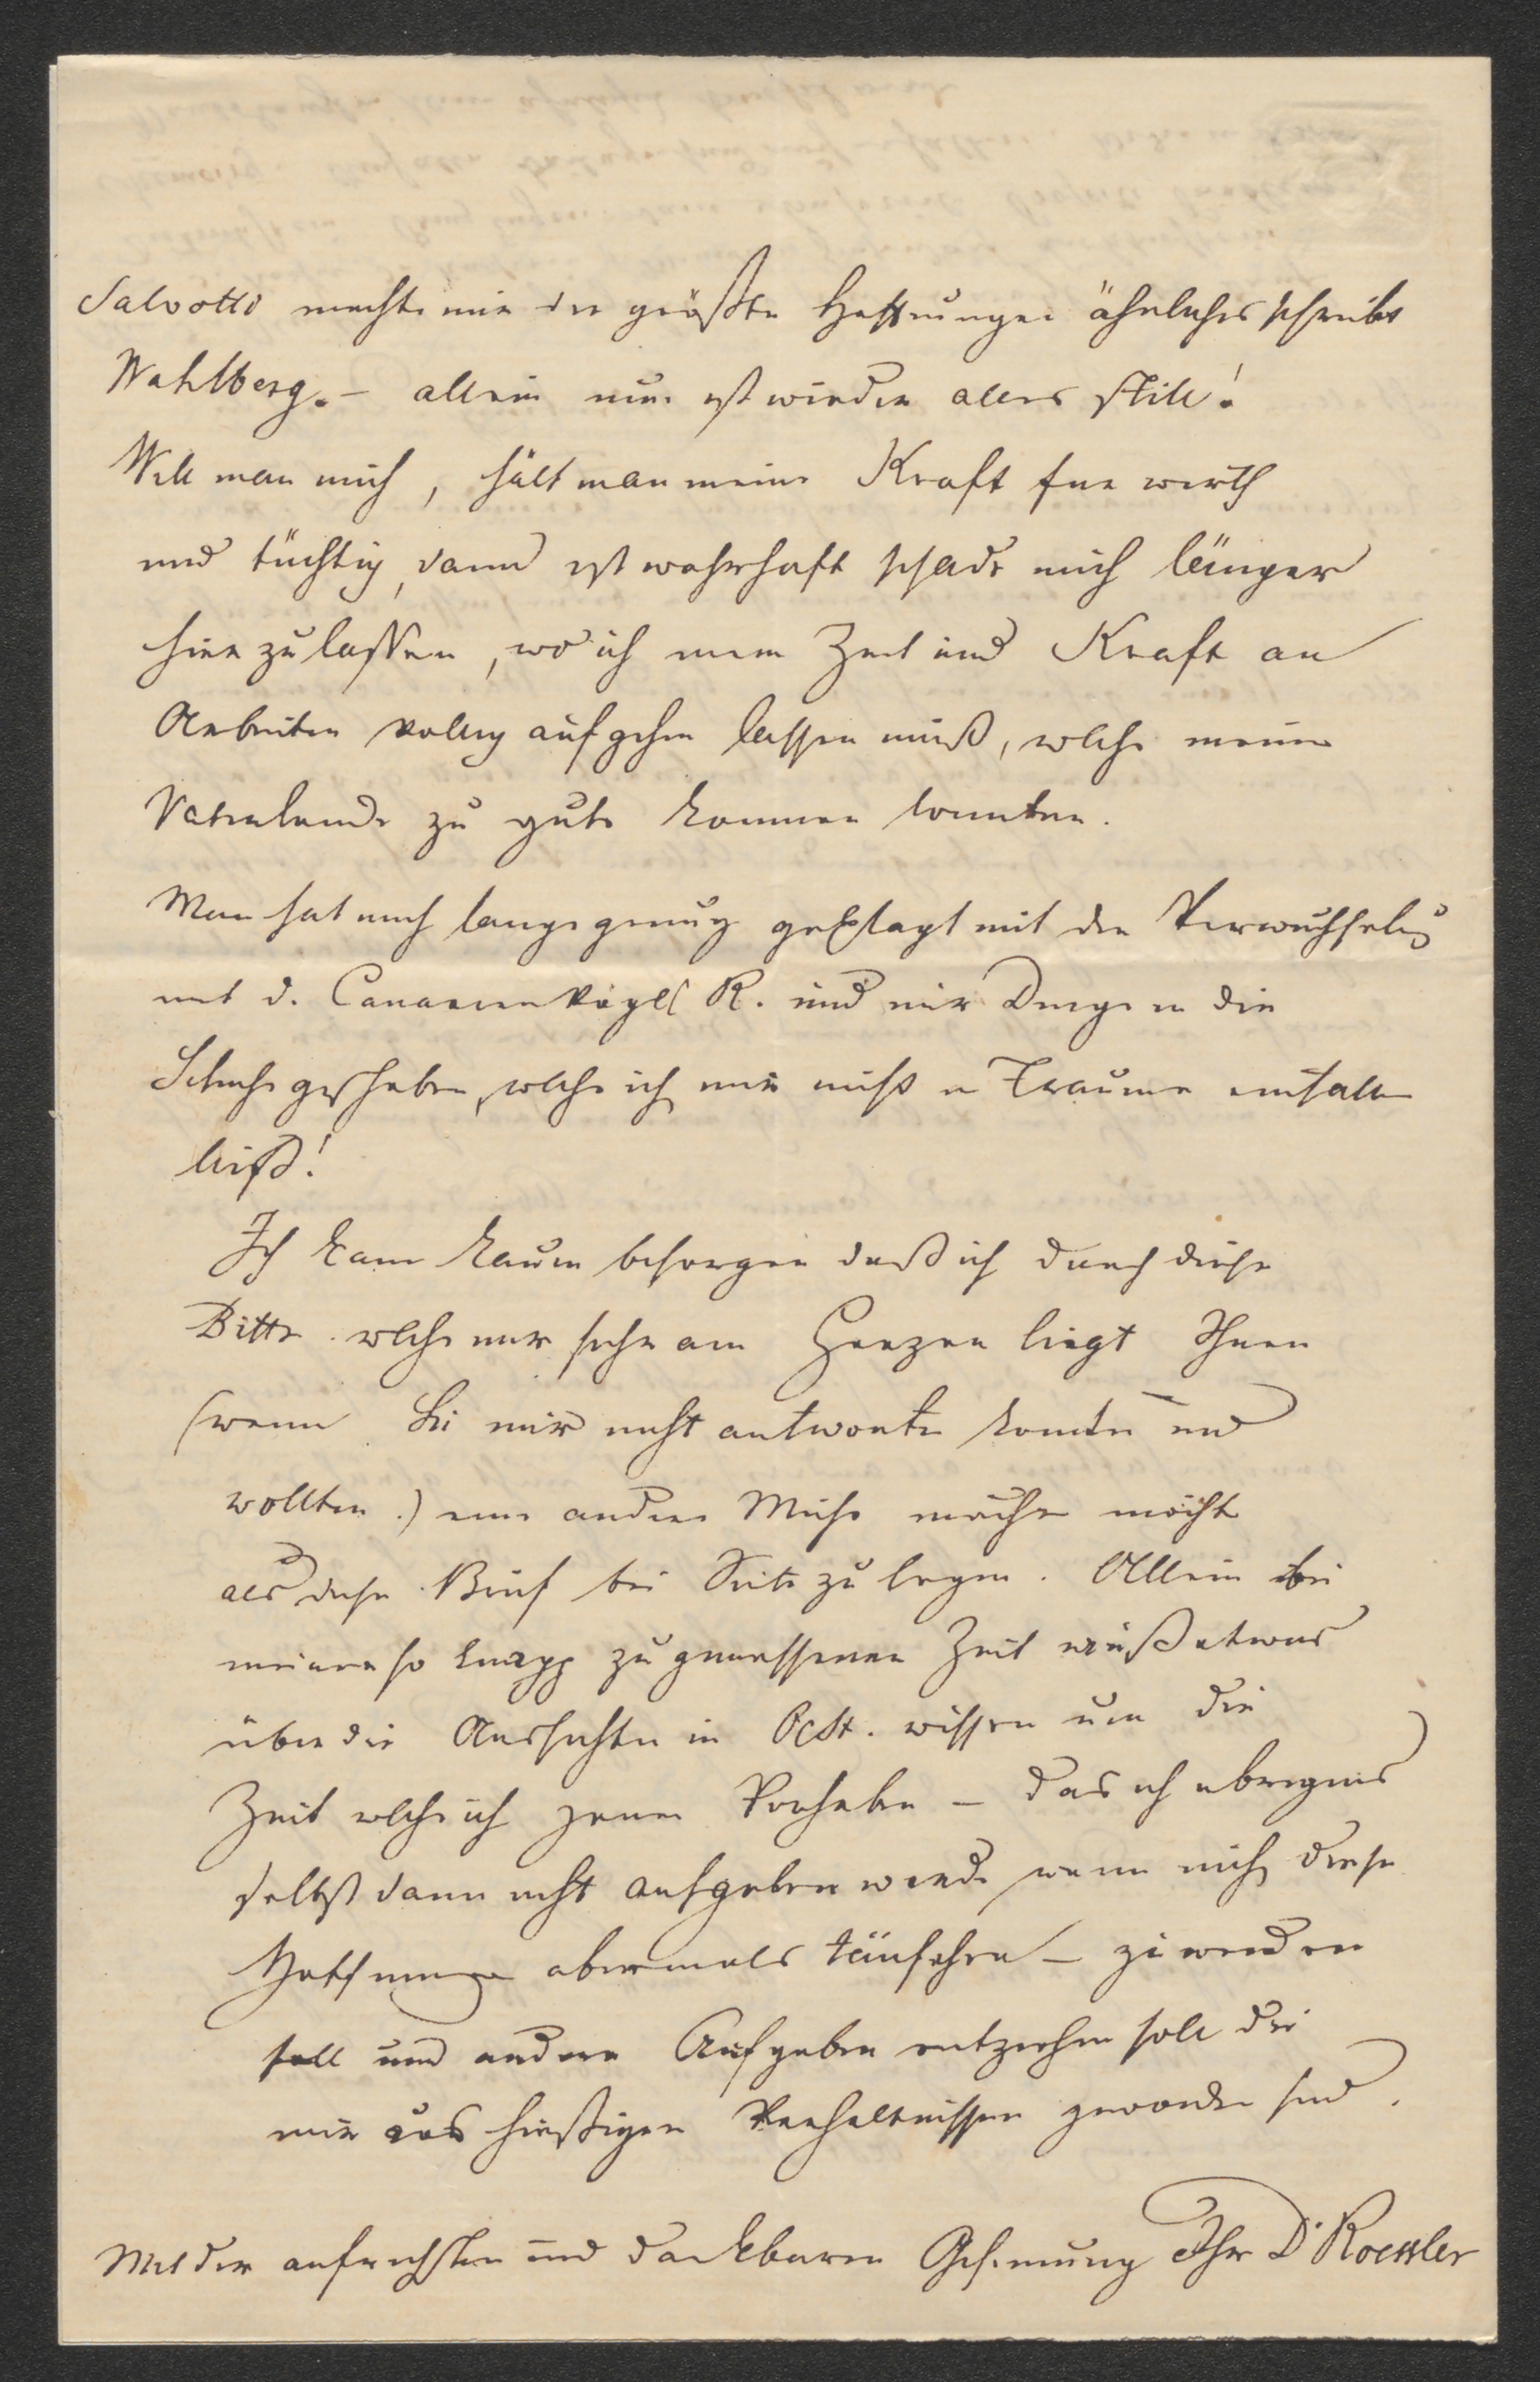 Salvotti machte mir die größten Hoffnungen ähnliches schreibt
Wahlberg. – allein nun ist wieder alles still!
Will man mich, hält man meine Kraft fur werth
und tüchtig, dann ist wahrhaft schade mich länger
hier zu lassen, wo ich mein Zeit und Kraft an
Arbeiten vollig aufgehen lassen muß, welche meinem
Vaterlande zu gute kommen konnten.
Man hat mich lange genug geplagt mit der Verwechselung
mit d. Canarienvogel R. und mir Dinge in die
Schuhe geschoben, welche ich mir nicht in Traume einfallen
ließ!
Ich kann kaum besorgen daß ich durch diese
Bitte welche mir sehr am Herzen liegt Ihnen
(wenn Sie mir nicht antworten konnten und
wollten.) eine andere Muhe machen möchte
als diesen Brief bei Seite zu legen. Allein bei
meiner so knapp zugemessenen Zeit muß etwas
über die Aussichten in Oest. wissen um die
Zeit welche ich jenem Vorhaben – das ich ubrigens
selbst dann nicht aufgeben werde, wenn mich diese
Hoffnungen abermals täuschen – zuwenden
soll und andern Aufgaben entziehen soll die
mir aus hießigen Verhaltnissen geworden sind.
Mit der aufrichsten und dankbaren Gesinnung Ihr Dr Roessler